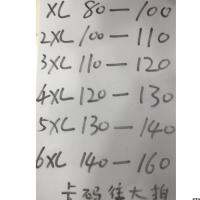 XL 80—100
2XL 100—110
3XL 110—120
4XL 120—130
5XL 130—140
6XL 140—160
卡码往大拍